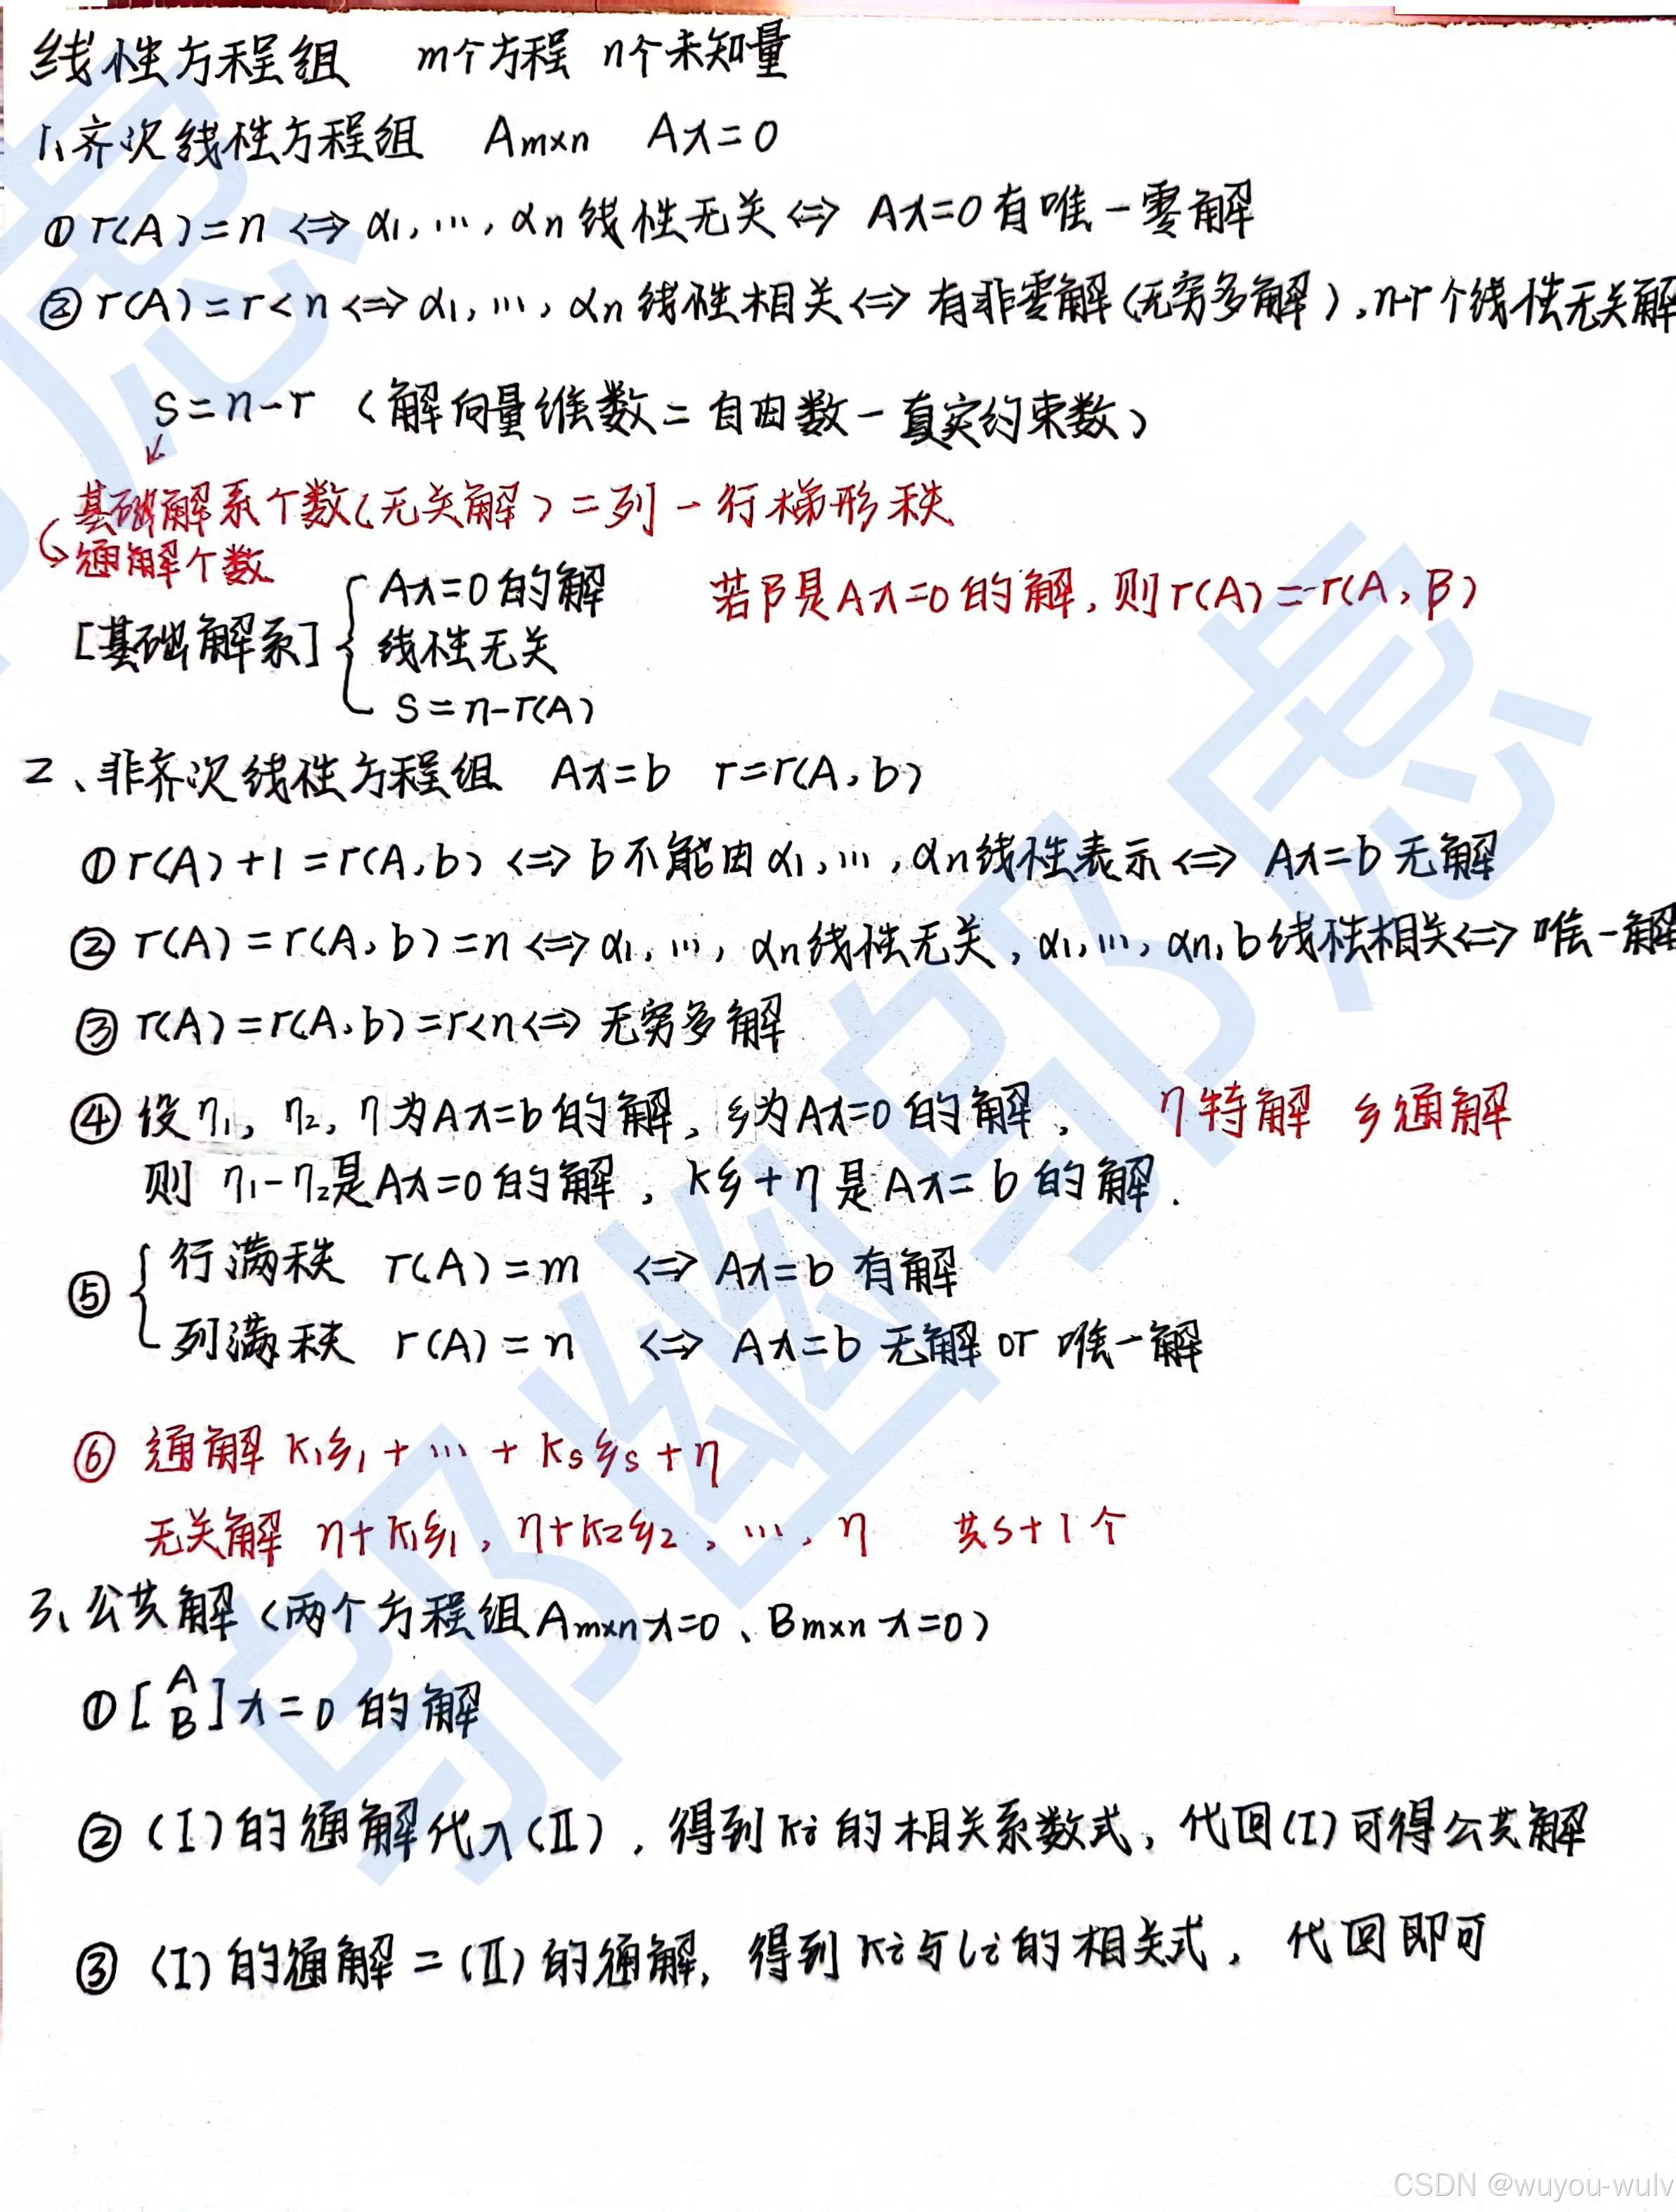 线性方程组 m个方程 n个未知量
1、齐次线性方程组 Am×n Ax=0
① r(A)=n ⇔ α1, …, αn 线性无关 ⇔ Ax=0 有唯一零解
② r(A)=r<n ⇔ α1, …, αn 线性相关 ⇔ 有非零解(无穷多解), n-r个线性无关解
S=n-r (解向量维数=自由数-真实约束数)
基础解系个数(无关解)=列-行梯形秩
通解个数
[基础解系] { Ax=0的解 若β是Ax=0的解, 则r(A)=r(A, β)
线性无关
S=n-r(A)
2、非齐次线性方程组 Ax=b r=r(A,b)
① r(A)+1=r(A,b) ⇔ b不能由α1, …, αn线性表示 ⇔ Ax=b 无解
② r(A)=r(A,b)=n ⇔ α1, …, αn线性无关, α1, …, αn, b线性相关 ⇔ 唯一解
③ r(A)=r(A,b)=r<n ⇔ 无穷多解
④ 设η1, η2, η为Ax=b的解, ξ为Ax=0的解, η特解 ξ通解
则 η1-η2是Ax=0的解, kξ+η是Ax=b的解.
⑤ { 行满秩 r(A)=m ⇔ Ax=b 有解
列满秩 r(A)=n ⇔ Ax=b 无解 or 唯一解
⑥ 通解 k1ξ1+…+ksξs+η
无关解 η+k1ξ1, η+k2ξ2, …, η 共s+1个
3、公共解(两个方程组Am×n x=0、Bm×n x=0)
① [A B] x=0 的解
② (I)的通解代入(II), 得到ki的相关系数式, 代回(I)可得公共解
③ (I)的通解=(II)的通解, 得到ki与li的相关式, 代回即可
邬幽邬虑
CSDN @wuyou-wulv